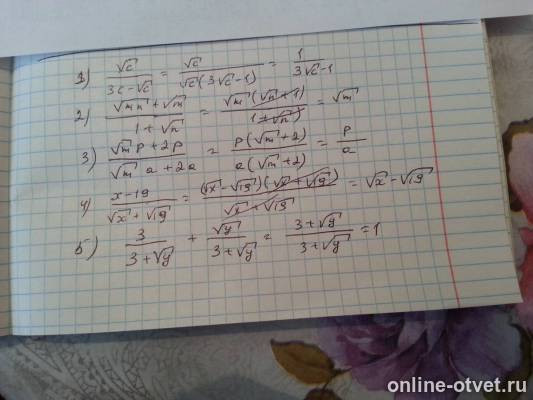 1) √c / (3c - √c) = √c / (√c(3√c - 1)) = 1 / (3√c - 1)
2) (√mn + √m) / (1 + √n) = (√m(√n + 1)) / (1 + √n) = √m
3) (√m p + 2p) / (√m a + 2a) = (p(√m + 2)) / (a(√m + 2)) = p / a
4) (x - 19) / (√x + √19) = ((√x - √19)(√x + √19)) / (√x + √19) = √x - √19
5) 3 / (3 + √y) + √y / (3 + √y) = (3 + √y) / (3 + √y) = 1
online-otvet.ru